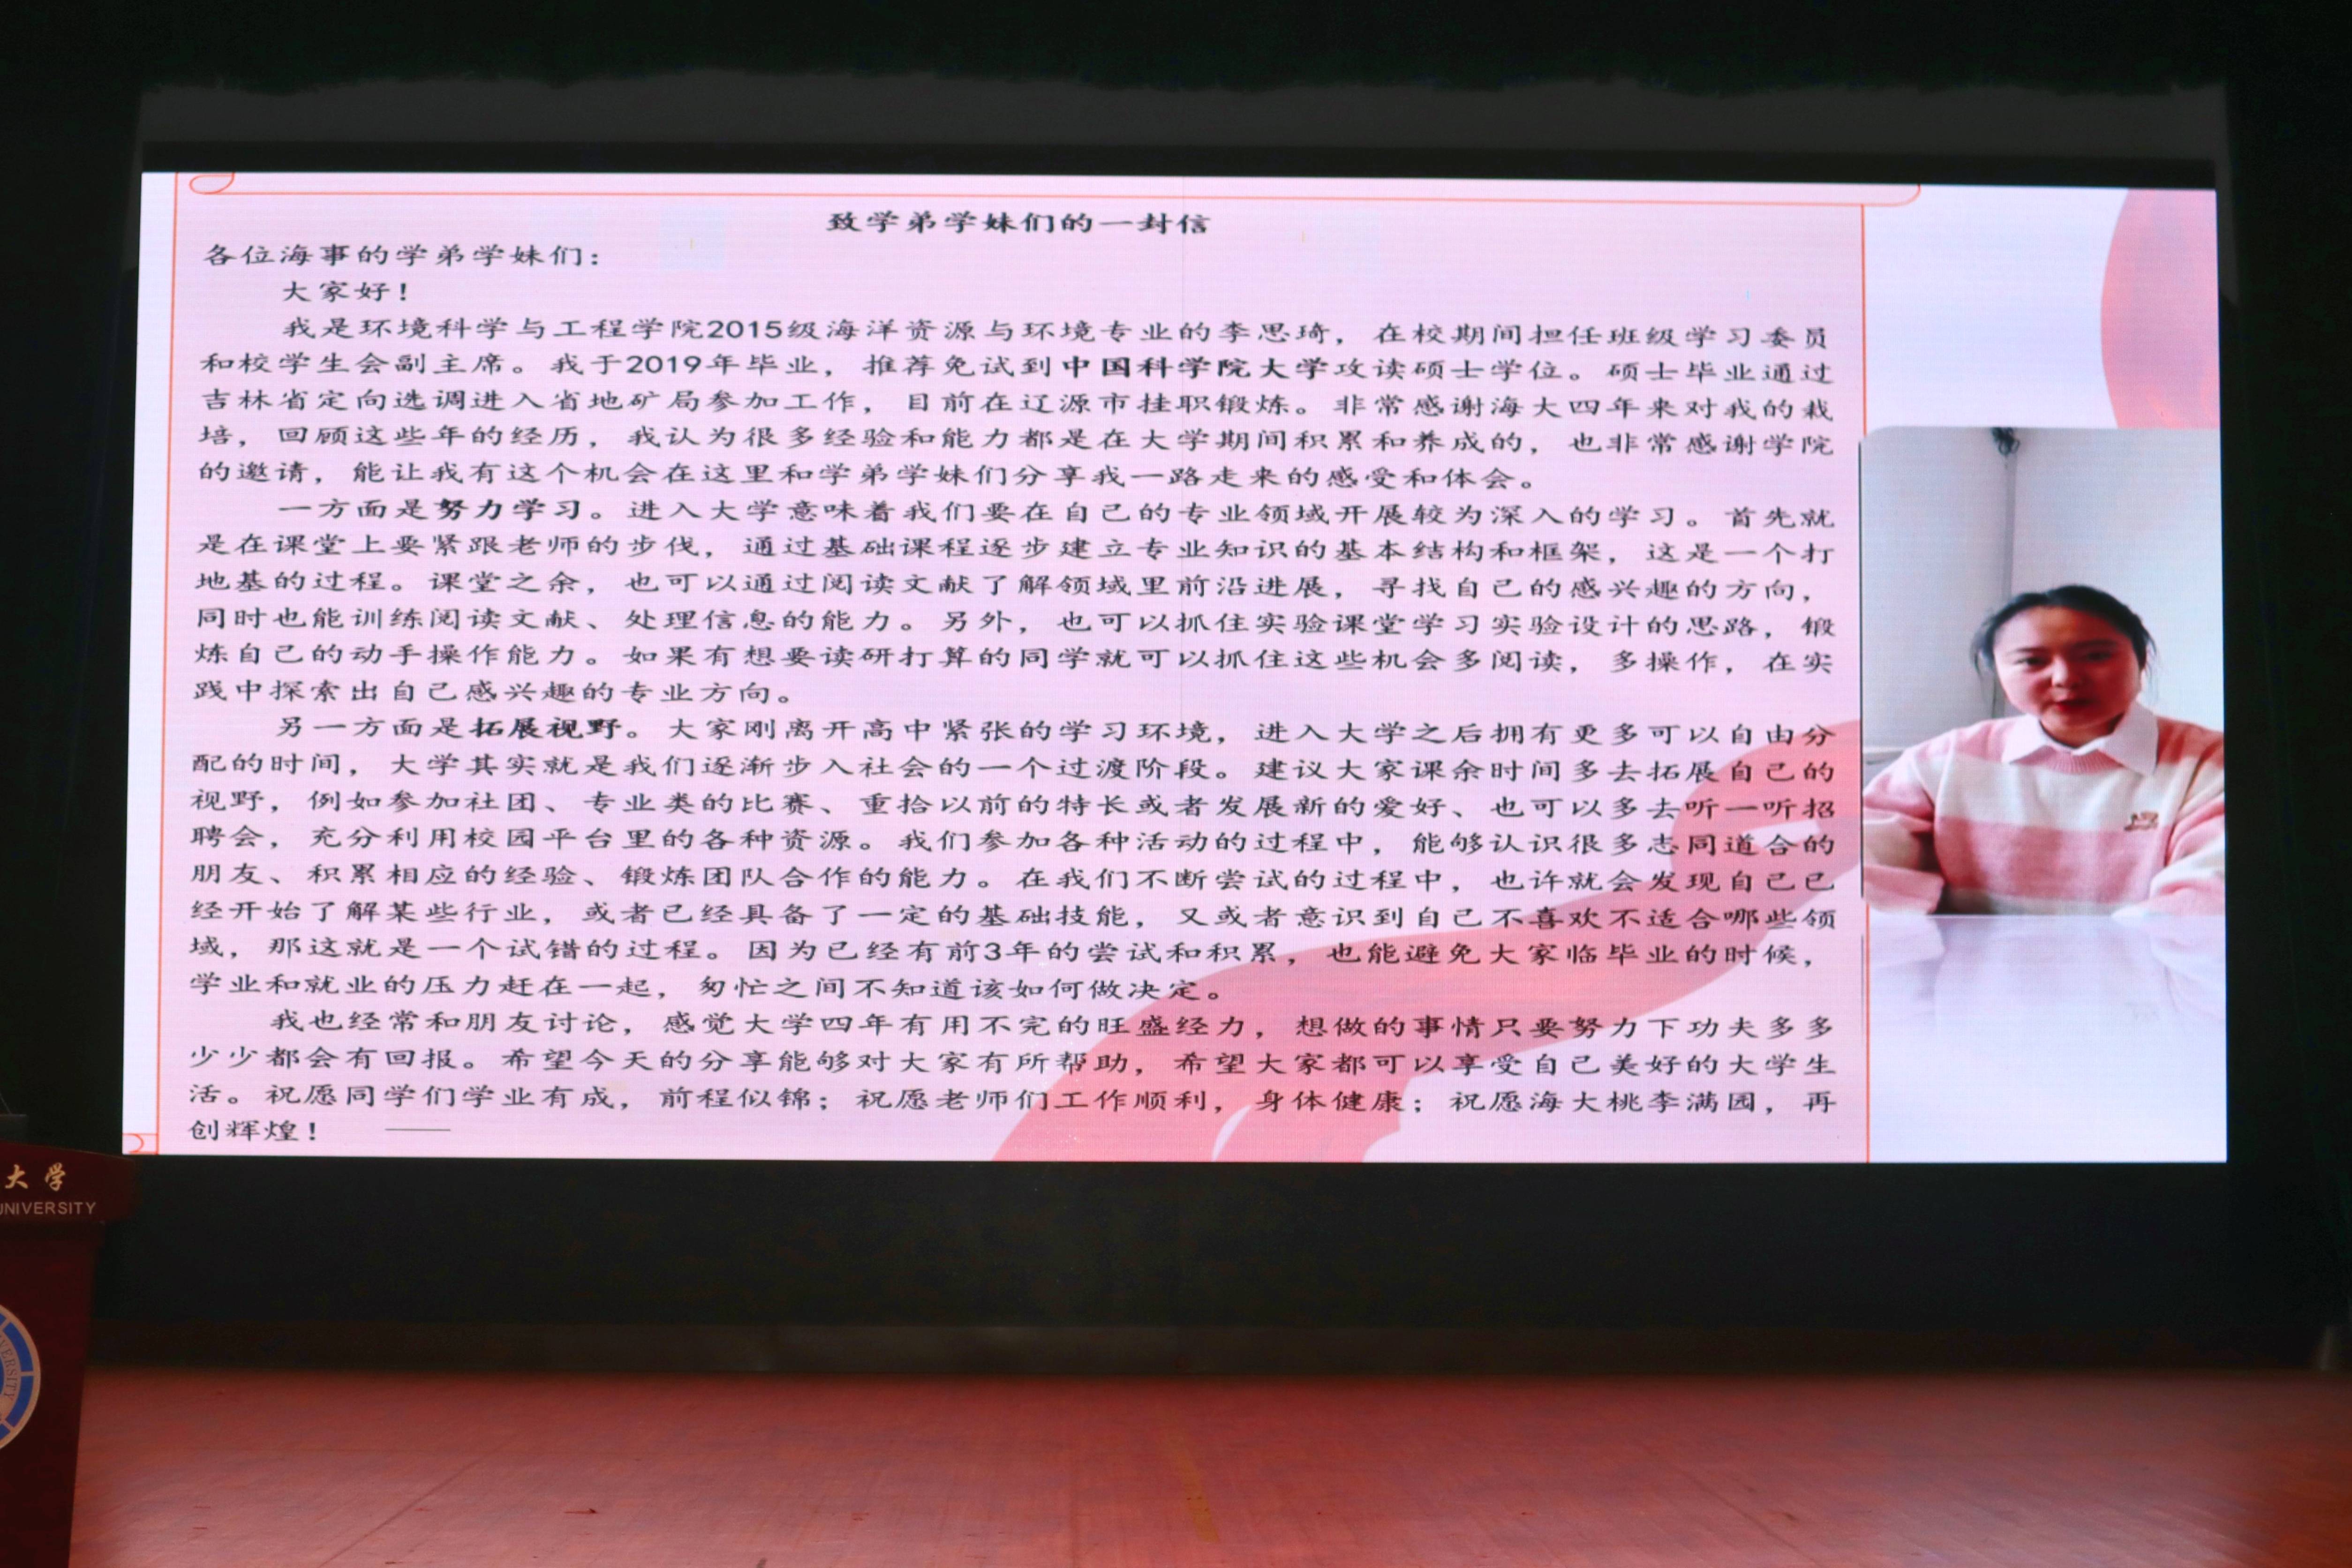 致学弟学妹们的一封信
各位海事的学弟学妹们：
大家好！
我是环境科学与工程学院2015级海洋资源与环境专业的李思琦，在校期间担任班级学习委员
和校学生会副主席。我于2019年毕业，推荐免试到中国科学院大学攻读硕士学位。硕士毕业通过
吉林省定向选调进入省地矿局参加工作，目前在辽源市挂职锻炼。非常感谢海大四年来对我的栽
培，回顾这些年的经历，我认为很多经验和能力都是在大学期间积累和养成的，也非常感谢学院
的邀请，能让我有这个机会在这里和学弟学妹们分享我一路走来的感受和体会。
一方面是努力学习。进入大学意味着我们要在自己的专业领域开展较为深入的学习。首先就
是在课堂上要紧跟老师的步伐，通过基础课程逐步建立专业知识的基本结构和框架，这是一个打
地基的过程。课堂之余，也可以通过阅读文献了解领域里前沿进展，寻找自己的感兴趣的方向，
同时也能训练阅读文献、处理信息的能力。另外，也可以抓住实验课堂学习实验设计的思路，锻
炼自己的动手操作能力。如果有想要读研打算的同学就可以抓住这些机会多阅读，多操作，在实
践中探索出自己感兴趣的专业方向。
另一方面是拓展视野。大家刚离开高中紧张的学习环境，进入大学之后拥有更多可以自由分
配的时间，大学其实就是我们逐渐步入社会的一个过渡阶段。建议大家课余时间多去拓展自己的
视野，例如参加社团、专业类的比赛、重拾以前的特长或者发展新的爱好、也可以多去听一听招
聘会，充分利用校园平台里的各种资源。我们参加各种活动的过程中，能够认识很多志同道合的
朋友、积累相应的经验、锻炼团队合作的能力。在我们不断尝试的过程中，也许就会发现自己已
经开始了解某些行业，或者已经具备了一定的基础技能，又或者意识到自己不喜欢不适合哪些领
域，那这就是一个试错的过程。因为已经有前3年的尝试和积累，也能避免大家临毕业的时候，
学业和就业的压力赶在一起，匆忙之间不知道该如何做决定。
我也经常和朋友讨论，感觉大学四年有用不完的旺盛经力，想做的事情只要努力下功夫多多
少少都会有回报。希望今天的分享能够对大家有所帮助，希望大家都可以享受自己美好的大学生
活。祝愿同学们学业有成，前程似锦；祝愿老师们工作顺利，身体健康；祝愿海大桃李满园，再
创辉煌！
大学
UNIVERSITY